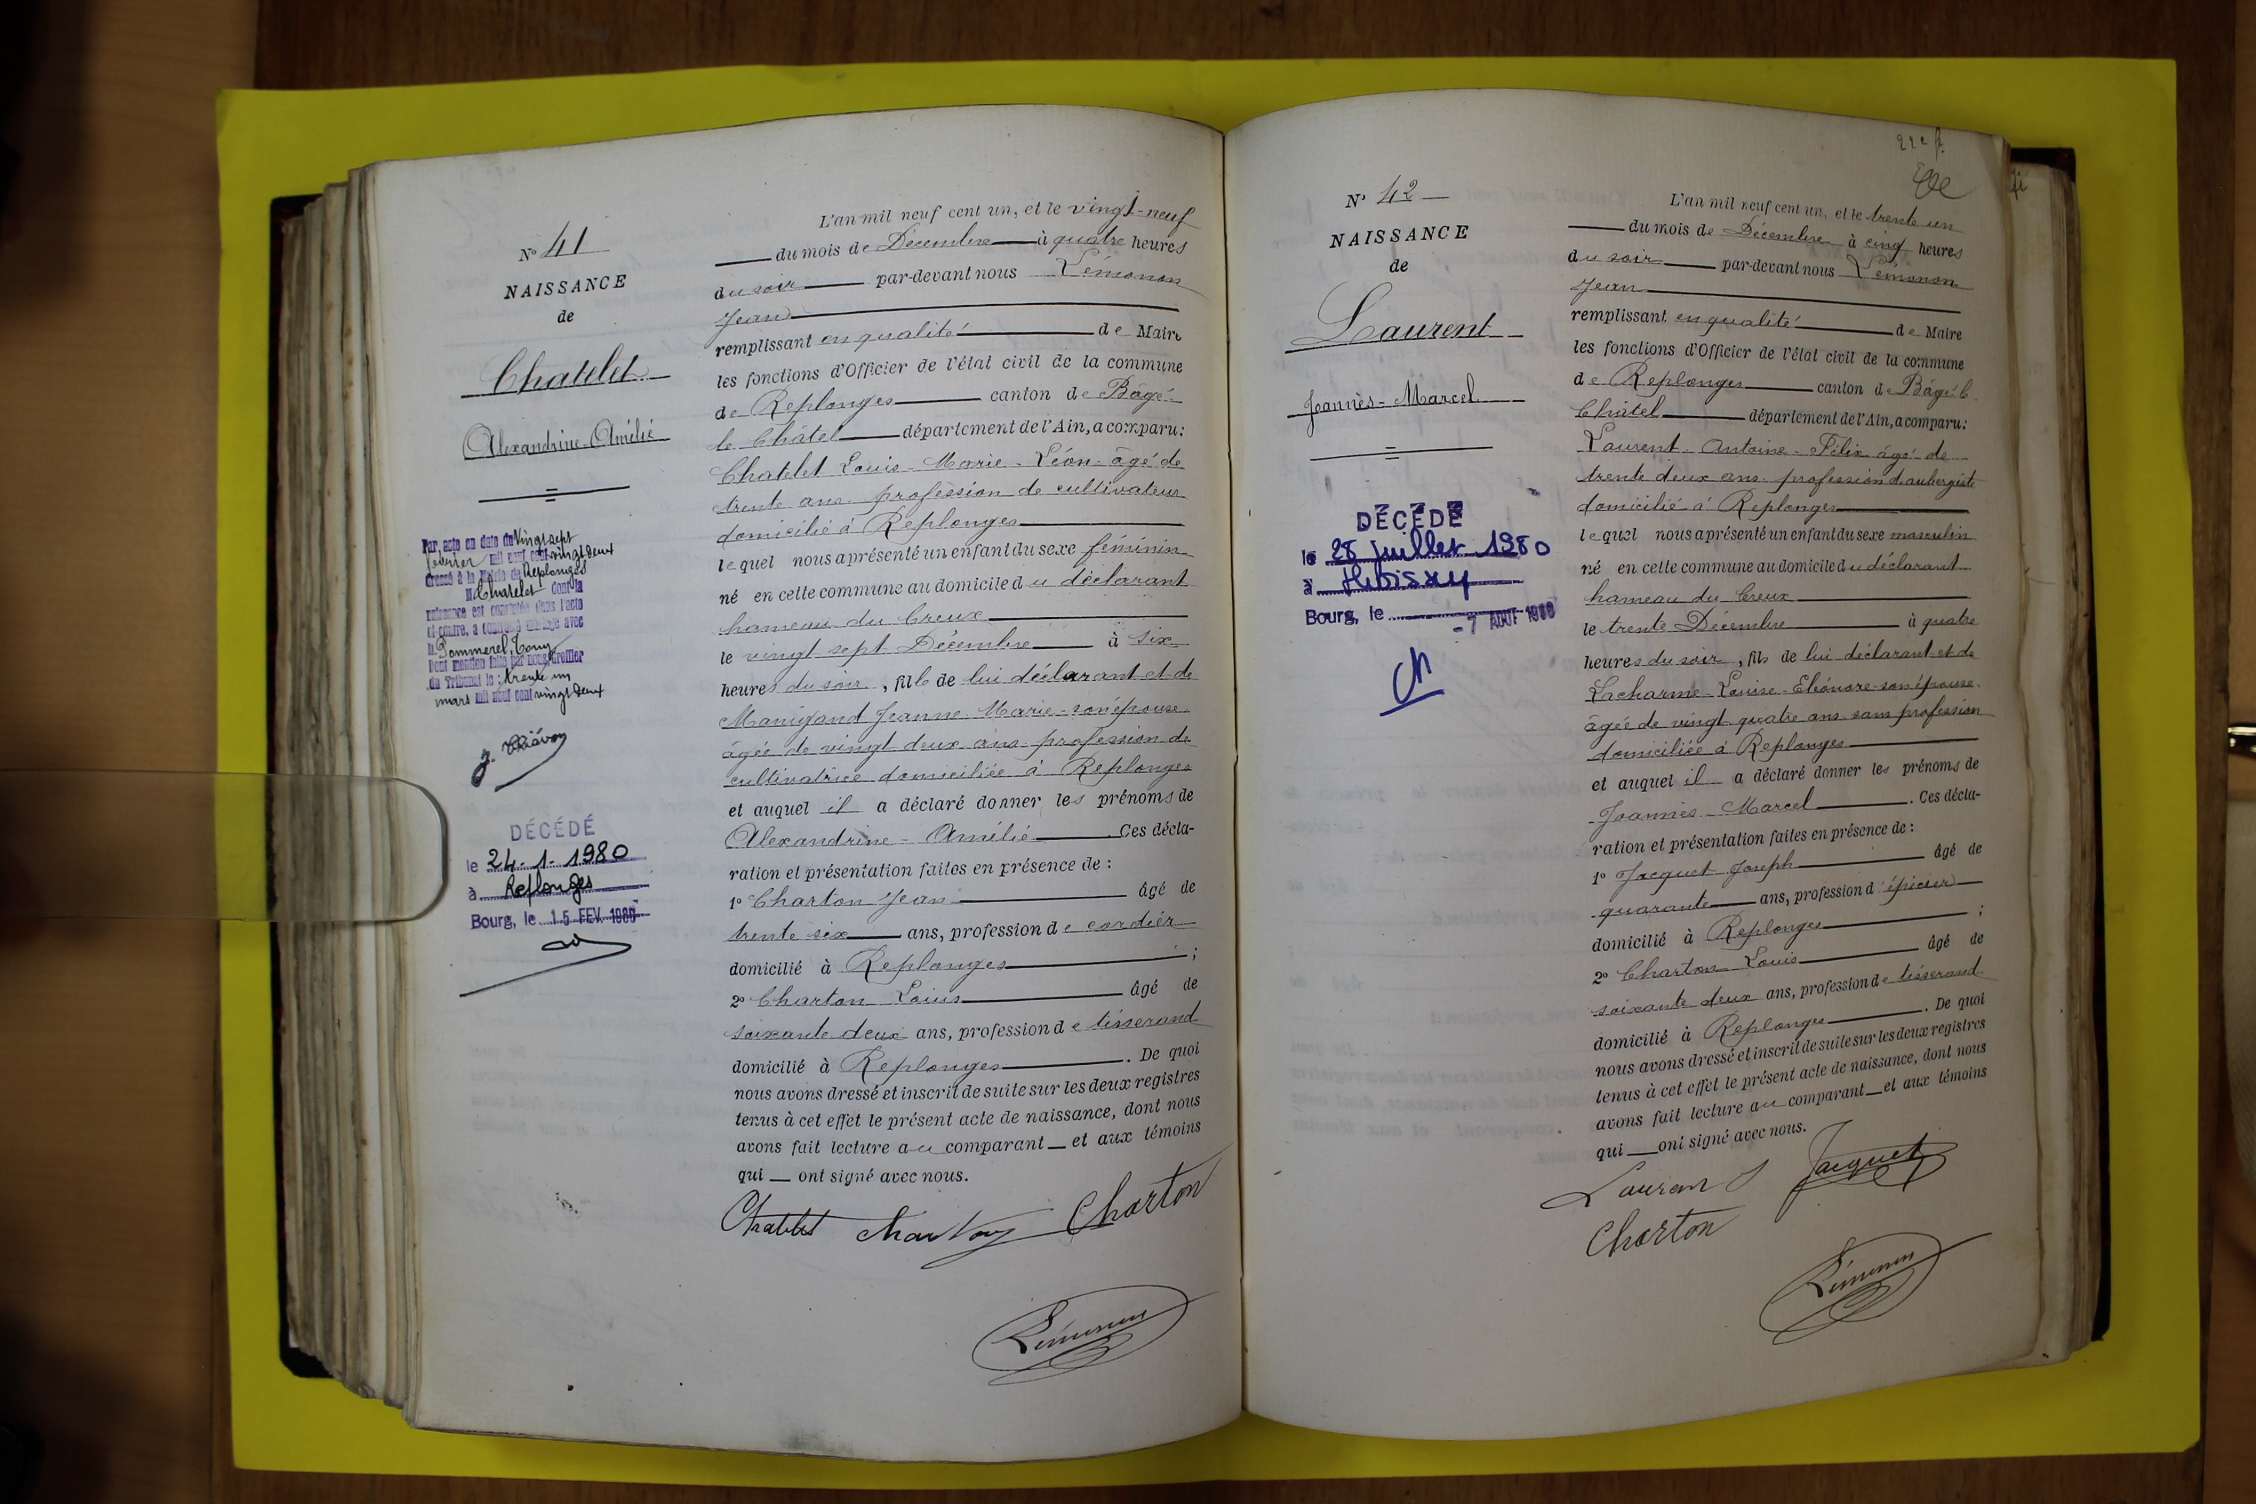 N° 41
NAISSANCE
de
Chatelet
Alexandrine-Amélie
Par acte en date du Vingt sept
février mil neuf cent vingt deux
dressé à la Mairie de Replonges
Chatelet dont la
naissance est constatée dans l'acte
ci-contre, a contracté mariage avec
Pommerel, Tony
Dont mention faite par nous, Greffier
du Tribunal le : trente un
mars mil neuf cent vingt deux
DÉCÉDÉ
le 24-1-1980
à Replonges
Bourg, le 15 FEV. 1980
L'an mil neuf cent un, et le vingt-neuf
du mois de Décembre à quatre heures
du soir par-devant nous Lémonon
Jean
remplissant en qualité de Maire
les fonctions d'Officier de l'état civil de la commune
de Replonges canton de Bâgé-
le Châtel département de l'Ain, a comparu:
Chatelet Louis-Marie-Léon-âgé de
trente ans profession de cultivateur
domicilié à Replonges
lequel nous a présenté un enfant du sexe féminin
né en cette commune au domicile du déclarant
hameau du Creux
le vingt sept Décembre à six
heures du soir, fils de lui déclarant et de
Manigand Jeanne-Marie-son épouse
âgée de vingt deux ans profession de
cultivatrice domiciliée à Replonges
et auquel il a déclaré donner les prénoms de
Alexandrine-Amélie Ces décla-
ration et présentation faites en présence de :
1° Charton Jean âgé de
trente six ans, profession de cordier
domicilié à Replonges ;
2° Charton Louis âgé de
soixante deux ans, profession de tisserand
domicilié à Replonges. De quoi
nous avons dressé et inscrit de suite sur les deux registres
tenus à cet effet le présent acte de naissance, dont nous
avons fait lecture au comparant et aux témoins
qui ont signé avec nous.
Chatelet Charton Charton
Lémonon
N° 42
NAISSANCE
de
Laurent
Joannès-Marcel
DÉCÉDÉ
le 28 Juillet 1980
à
Bourg, le -7 AOUT 1980
L'an mil neuf cent un, et le trente un
du mois de Décembre à cinq heures
du soir par-devant nous Lémonon
Jean
remplissant en qualité de Maire
les fonctions d'Officier de l'état civil de la commune
de Replonges canton de Bâgé-l
Châtel département de l'Ain, a comparu:
Laurent-Antoine-Félix âgé de
trente deux ans profession d'aubergiste
domicilié à Replonges
lequel nous a présenté un enfant du sexe masculin
né en cette commune au domicile du déclarant
hameau du Creux
le trente Décembre à quatre
heures du soir, fils de lui déclarant et de
Lacharme-Louise-Eléonore-son épouse
âgée de vingt quatre ans sans profession
domiciliée à Replonges
et auquel il a déclaré donner les prénoms de
Joannès-Marcel. Ces décla-
ration et présentation faites en présence de :
1° Jacquet Joseph âgé de
quarante ans, profession d'épicier
domicilié à Replonges ;
2° Charton Louis âgé de
soixante deux ans, profession de tisserand
domicilié à Replonges. De quoi
nous avons dressé et inscrit de suite sur les deux registres
tenus à cet effet le présent acte de naissance, dont nous
avons fait lecture au comparant et aux témoins
qui ont signé avec nous.
Laurent Jacquet
Charton
Lémonon